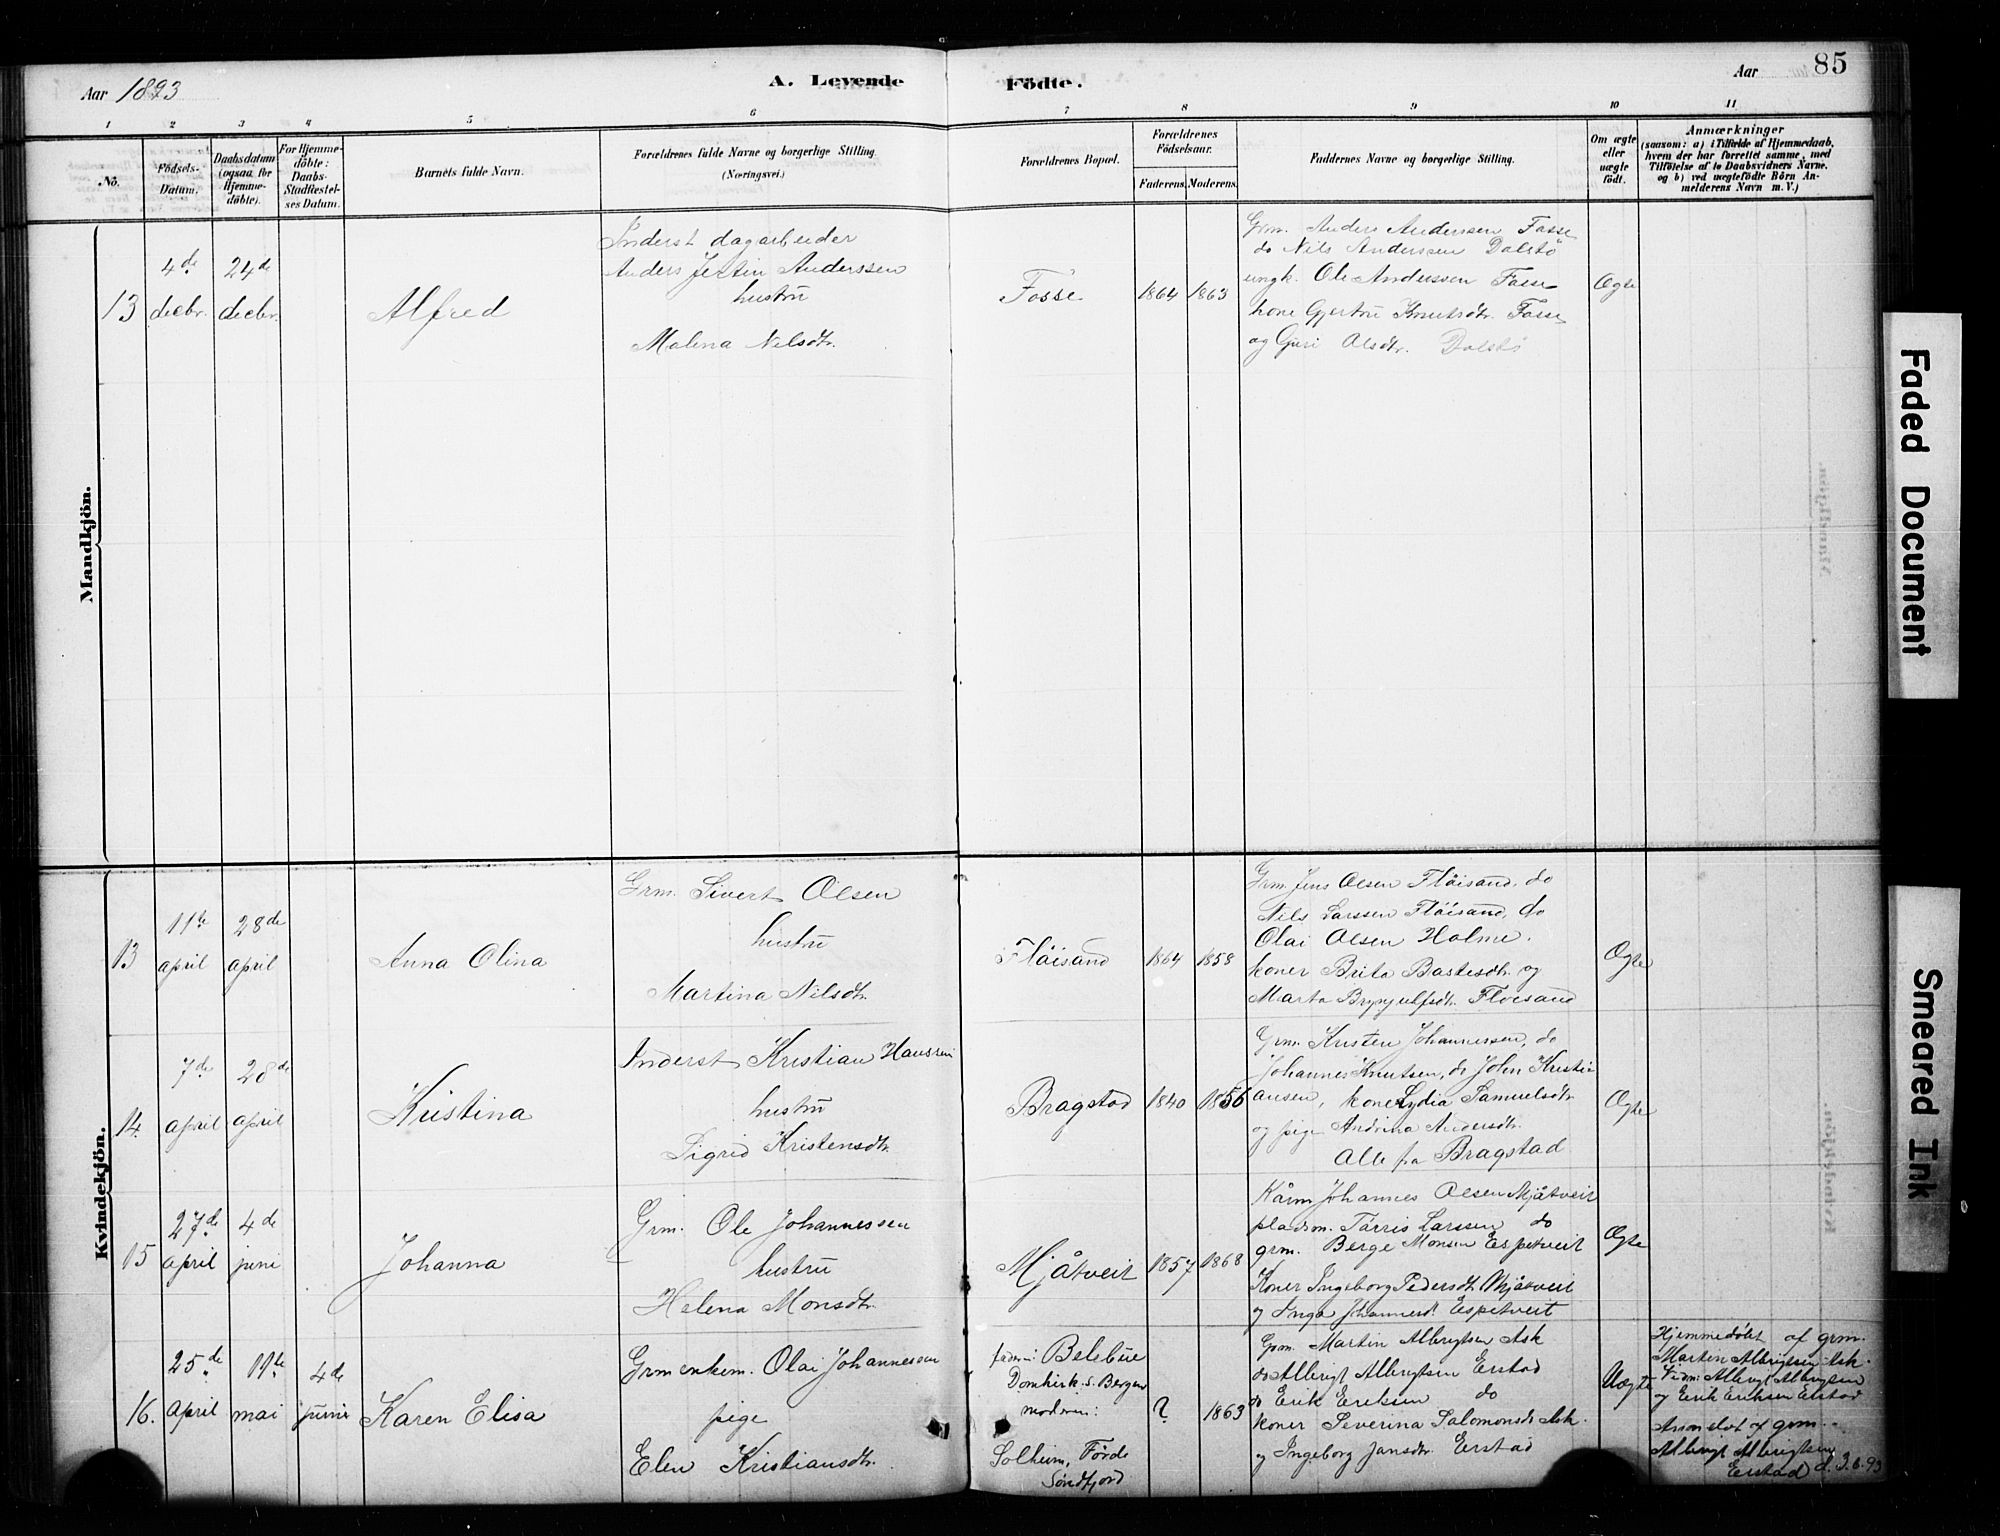 Aar 1893
A. Levende
Födte.
Aar
85
1 2 3 4 5 6 7 8 9 10 11
No.
Födsels-
Datum.
Daabsdatum
(ogsaa for
Hjemme-
döbte).
For Hjemme-
döbte:
Daabs-
Stadfæstel-
ses Datum.
Barnets fulde Navn.
Forældrenes fulde Navne og borgerlige Stilling.
(Næringsvei.)
Forældrenes Bopæl.
Forældrenes
Födselsaar.
Faderens. Moderens.
Faddernes Navne og borgerlige Stilling.
Om ægte
eller
uægte
födt.
Anmærkninger
(saasom: a) i Tilfælde af Hjemmedaab,
hvem der har forrettet samme, med
Tilföielse af to Daabsvidners Navne.
og b) ved uægtefödte Börn An-
melderens Navn m. V.)
Mandkjön.
13
4de
decbr.
24de
decbr.
Alfred
Inderst dagarbeider
Anders Anderssen
hustru
Malena Nilsdtr.
Fosse
1864
1863
Grm. Anders Anderssen Fosse
do Nils Anderssen Dalstö
ungk. Ole Anderssen Fosse
kone Gjertru Knutsdtr. Fosse
og Guri Olsdtr. Dalstö
Ægte
Kvindekjön.
13
11te
april
28de
april
Anna Olina
Grm. Sivert Olsen
hustru
Martina Nilsdtr.
Flöisand
1864
1858
Grm. Jens Olsen Flöisand, do
Nils Larssen Flöisand, do
Olai Olsen Holme.
koner Brita Bastesdtr. og
Marta Brynjulfsdtr. Floisand
Ægte
14.
7de
april
28de
april
Kristina
Inderst Kristian Hanssen
hustru
Sigrid Kristensdtr.
Bragstad
1840
1856
Grm. Kristen Johannessen, do
Johannes Knutsen, do John Kristi-
ansen, kone Lydia Samuelsdtr.
og pige Andrina Andersdtr.
Alle fra Bragstad
Ægte
15
27de
april
4de
juni
Johanna
Grm. Ole Johannessen
hustru
Helena Monsdtr.
Mjåtveit
1857
1868
Kårm Johannes Olsen Mjåtveit
pladsm. Tørris Larssen do
grm. Berge Monsen Espetveit
Koner Ingeborg Pedersdtr. Mjåtveit
og Inga Johannesd. Espetveit
Ægte
16.
25de
april
19te
mai
4de
juni
Karen Elisa
Grm enkem. Olai Johannessen
pige
Elen Kristiansdtr.
faderen: Belebue
Domkirk. s. Bergen
moderen:
Solheim, Førde
Søndfjord
?
1863
Grm. Martin Albrigtsen Ask
do Albrigt Albrigtsen Erstad
do Erik Eriksen do
koner Severina Salomonsdr. Ask.
og Ingeborg Jansdtr. Erstad
Uægte
Hjemmedöbt af grm.
Martin Albrigtsen Ask.
Vidn: Albrigt Albrigtsen
og Erik Eriksen Erstad
Anmeldt af grm.
Albrigt Albrigtsen
Erstad d. 3.6.93
Faded Document
Smeared Ink